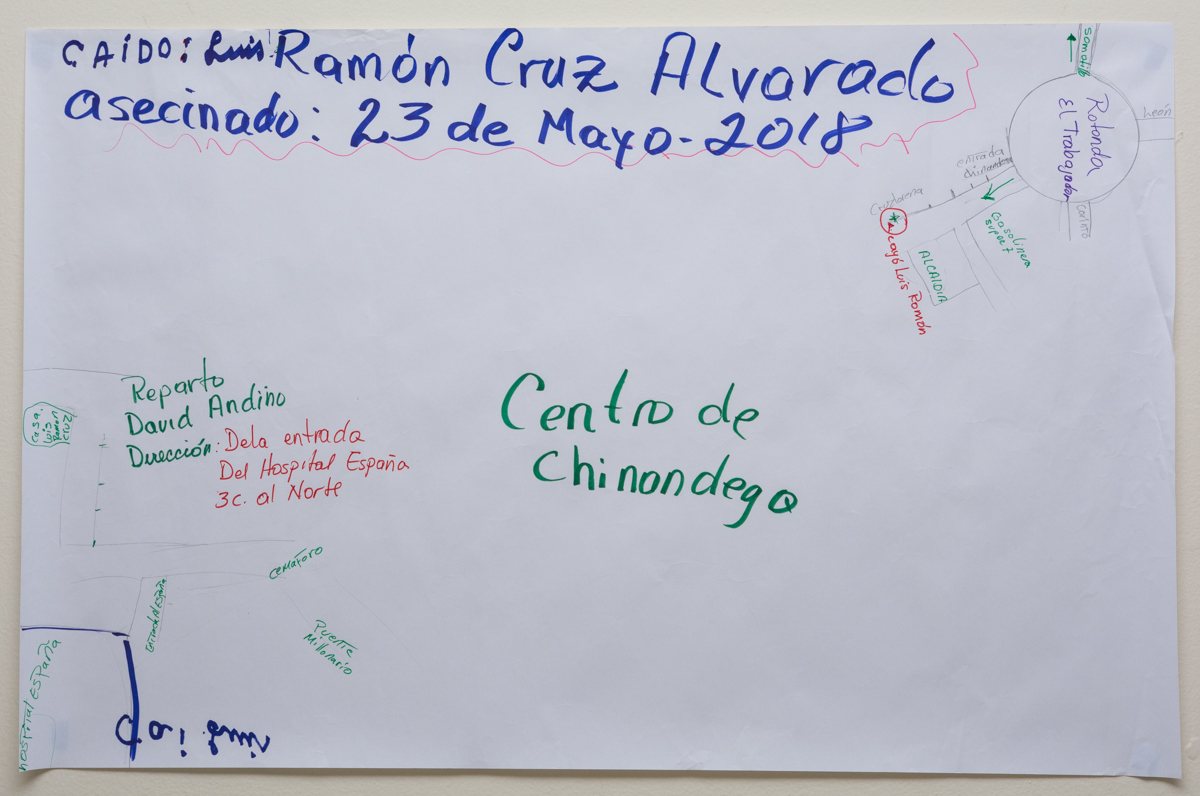 CAÍDO: Luis Ramón Cruz Alvarado
asecinado: 23 de Mayo-2018
somotillo
Rotonda
El Trabajador
León
entrada
chinandega
corinto
Gasolinera
super 7
ALCALDIA
cayó Luis Romón
Reparto
David Andino
Dirección: Dela entrada
Del Hospital España
3c. al Norte
casa.
Luis
Ramon
cruz
Centro de
Chinondega
cemáforo
Puente
Millonario
Entrada España
hospital España